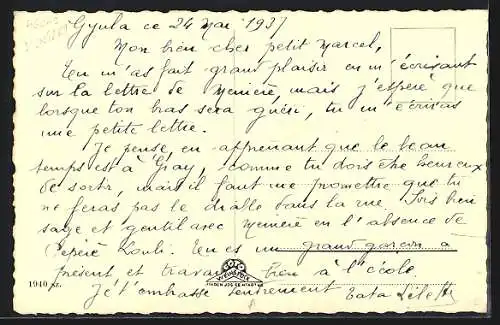 Gyula ce 24 Mai 1937
Mon bien cher petit Marcel,
Tu m'as fait grand plaisir en m'écrivant
sur la lettre de Mémère, mais j'espère que
lorsque ton bras sera guéri, tu m'écriras
une petite lettre.
Je pense, en apprenant que le beau
temps est à Gray, comme tu dois être heureux
de sortir, mais il faut me promettre que tu
ne feras pas le diable dans la rue. Sois bien
sage et gentil avec Mémère en l'absence de
Pépère Louli. Tu es un grand garçon à
présent et travaille bien à l'école.
WEINSTOCK
MINDEN JOG FENTARTVA
1940 sz.
Je t'embrasse tendrement Tata